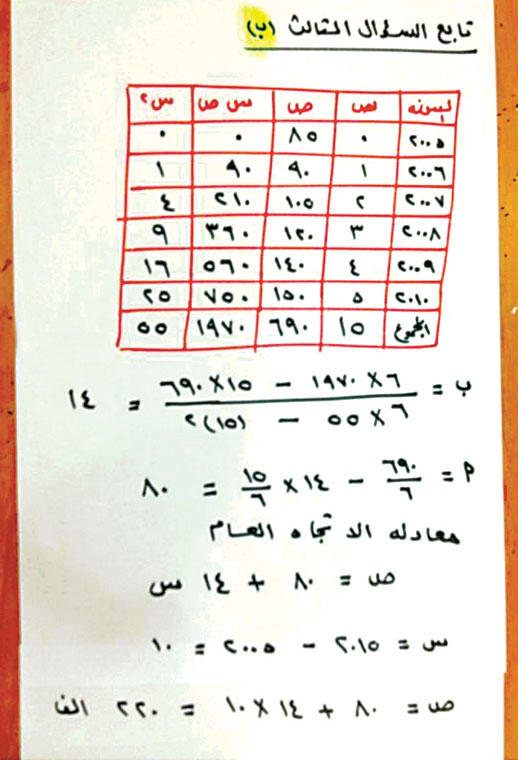 تابع السؤال الثالث (ب)
السنه س ص س ص س٢
٢٠٠٥ ٠ ٨٥ ٠ ٠
٢٠٠٦ ١ ٩٠ ٩٠ ١
٢٠٠٧ ٢ ١٠٥ ٢١٠ ٤
٢٠٠٨ ٣ ١٢٠ ٣٦٠ ٩
٢٠٠٩ ٤ ١٤٠ ٥٦٠ ١٦
٢٠١٠ ٥ ١٥٠ ٧٥٠ ٢٥
المجموع ١٥ ٦٩٠ ١٩٧٠ ٥٥
ب = (٦×١٩٧٠ − ١٥×٦٩٠) / (٦×٥٥ − (١٥)٢) = ١٤
م = ٦٩٠/٦ − ١٤×١٥/٦ = ٨٠
معادله الاتجاه العام
ص = ٨٠ + ١٤ س
س = ٢٠١٥ − ٢٠٠٥ = ١٠
ص = ٨٠ + ١٤×١٠ = ٢٢٠ الف